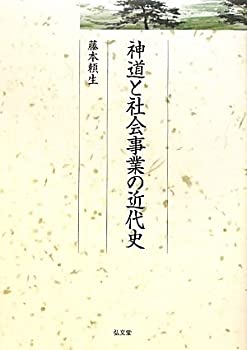 神道と社会事業の近代史
藤本頼生
弘文堂